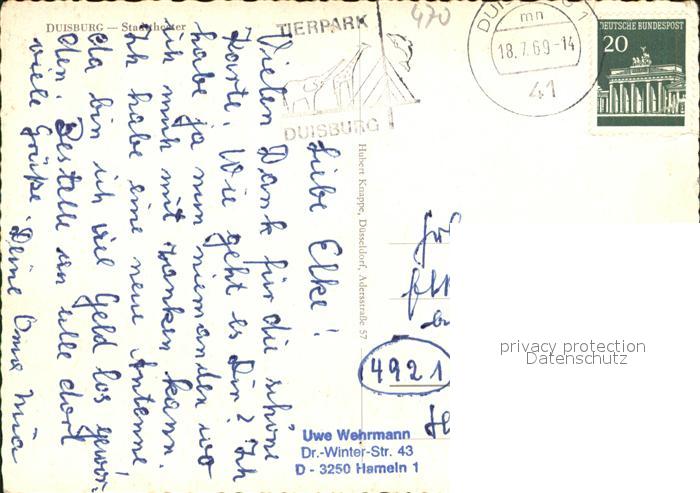 DUISBURG — Stadttheater
TIERPARK
DUISBURG
470
DU 1
mn
18.7.69-14
41
DEUTSCHE BUNDESPOST
20
Liebe Elke!
Vielen Dank für die schöne
Karte. Wie geht es Dir? Ich
habe ja nun niemanden wo
ich mich mit zanken kann.
Ich habe eine neue Antenne
da bin ich viel Geld los gewor-
den. Bestelle an alle dort
viele Grüße. Deine Oma
Hubert Knappe, Düsseldorf, Adersstraße 57
4921
privacy protection
Datenschutz
Uwe Wehrmann
Dr.-Winter-Str. 43
D - 3250 Hameln 1